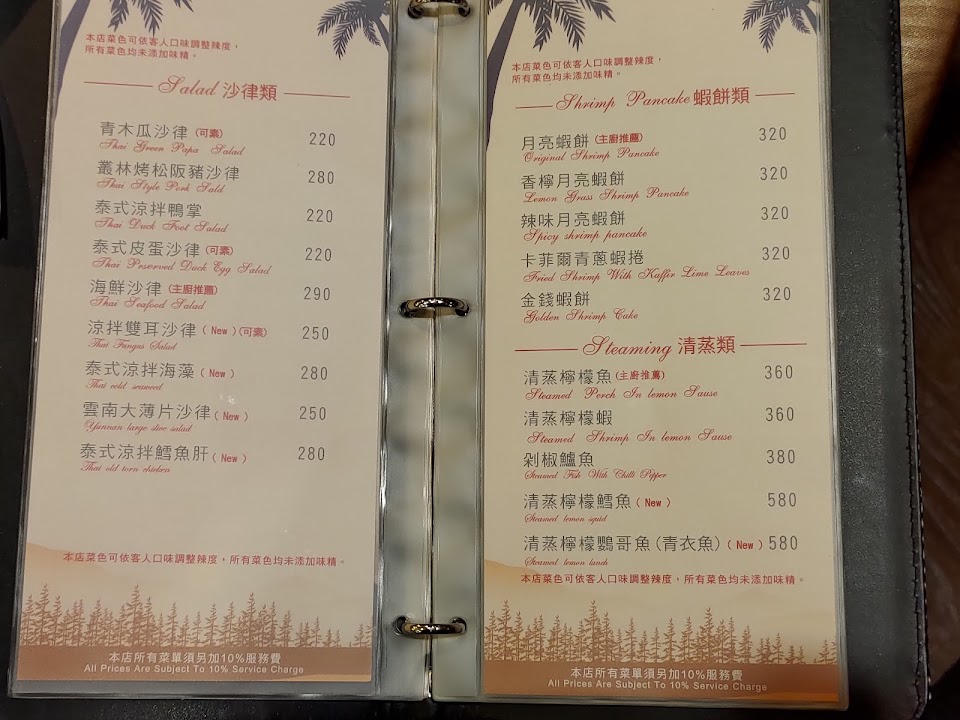 本店菜色可依客人口味調整辣度，
所有菜色均未添加味精。
Salad 沙律類
青木瓜沙律(可素) 220
Thai Green Papa Salad
叢林烤松阪豬沙律 280
Thai Style Pork Sald
泰式涼拌鴨掌 220
Thai Duck Foot Salad
泰式皮蛋沙律(可素) 220
Thai Prserved Duck Egg Salad
海鮮沙律(主廚推薦) 290
Thai Seafood Salad
涼拌雙耳沙律(New)(可素) 250
Thai Fungus Salad
泰式涼拌海藻(New) 280
Thai cold seaweed
雲南大薄片沙律(New) 250
Yunnan large slice salad
泰式涼拌鱈魚肝(New) 280
Thai old torn chicken
本店菜色可依客人口味調整辣度，所有菜色均未添加味精。
本店所有菜單須另加10%服務費
All Prices Are Subject To 10% Service Charge
本店菜色可依客人口味調整辣度，
所有菜色均未添加味精。
Shrimp Pancake 蝦餅類
月亮蝦餅(主廚推薦) 320
Original Shrimp Pancake
香檸月亮蝦餅 320
Lemon Grass Shrimp Pancake
辣味月亮蝦餅 320
Spicy shrimp pancake
卡菲爾青蔥蝦捲 320
Fried Shrimp With Kaffir Lime Leaves
金錢蝦餅 320
Golden Shrimp Cake
Steaming 清蒸類
清蒸檸檬魚(主廚推薦) 360
Steamed Perch In lemon Sause
清蒸檸檬蝦 360
Steamed Shrimp In lemon Sause
剁椒鱸魚 380
Steamed Fish With Chilli Pepper
清蒸檸檬鱈魚(New) 580
Steamed lemon squid
清蒸檸檬鸚哥魚(青衣魚)(New) 580
Steamed lemon lunch
本店菜色可依客人口味調整辣度，所有菜色均未添加味精。
本店所有菜單須另加10%服務費
All Prices Are Subject To 10% Service Charge